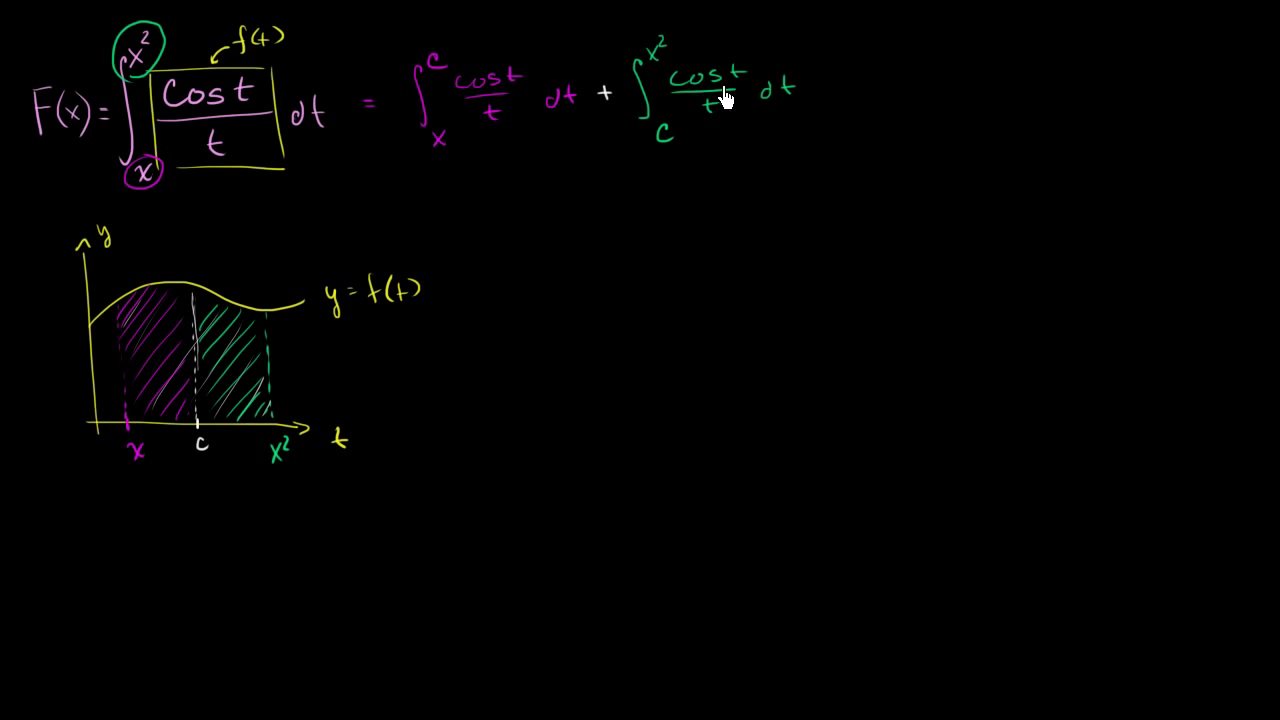 F(x) = ∫ₓ^{x²} cos t / t dt = ∫ₓ^{c} cos t / t dt + ∫_c^{x²} cos t / t dt
f(t)
y
y = f(t)
x c x² t